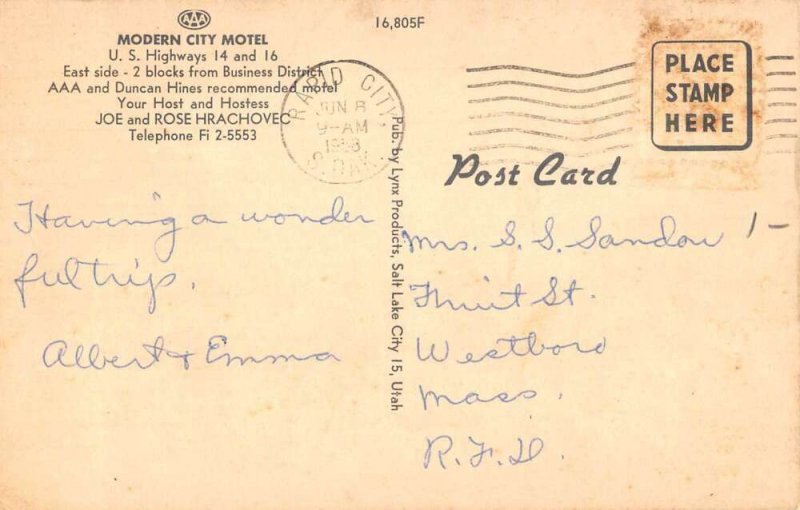 AAA
16,805F
MODERN CITY MOTEL
U. S. Highways 14 and 16
East side - 2 blocks from Business District
AAA and Duncan Hines recommended motel
Your Host and Hostess
JOE and ROSE HRACHOVEC
Telephone Fi 2-5553
RAPID CITY,
JUN 8
9-AM
S. DAK.
PLACE
STAMP
HERE
Post Card
Having a wonder
ful trip.
Albert + Emma
Pub. by Lynx Products, Salt Lake City 15, Utah
Mrs. S. S. Sandow 1-
Fruit St.
Westboro
Mass.
R.F.D.